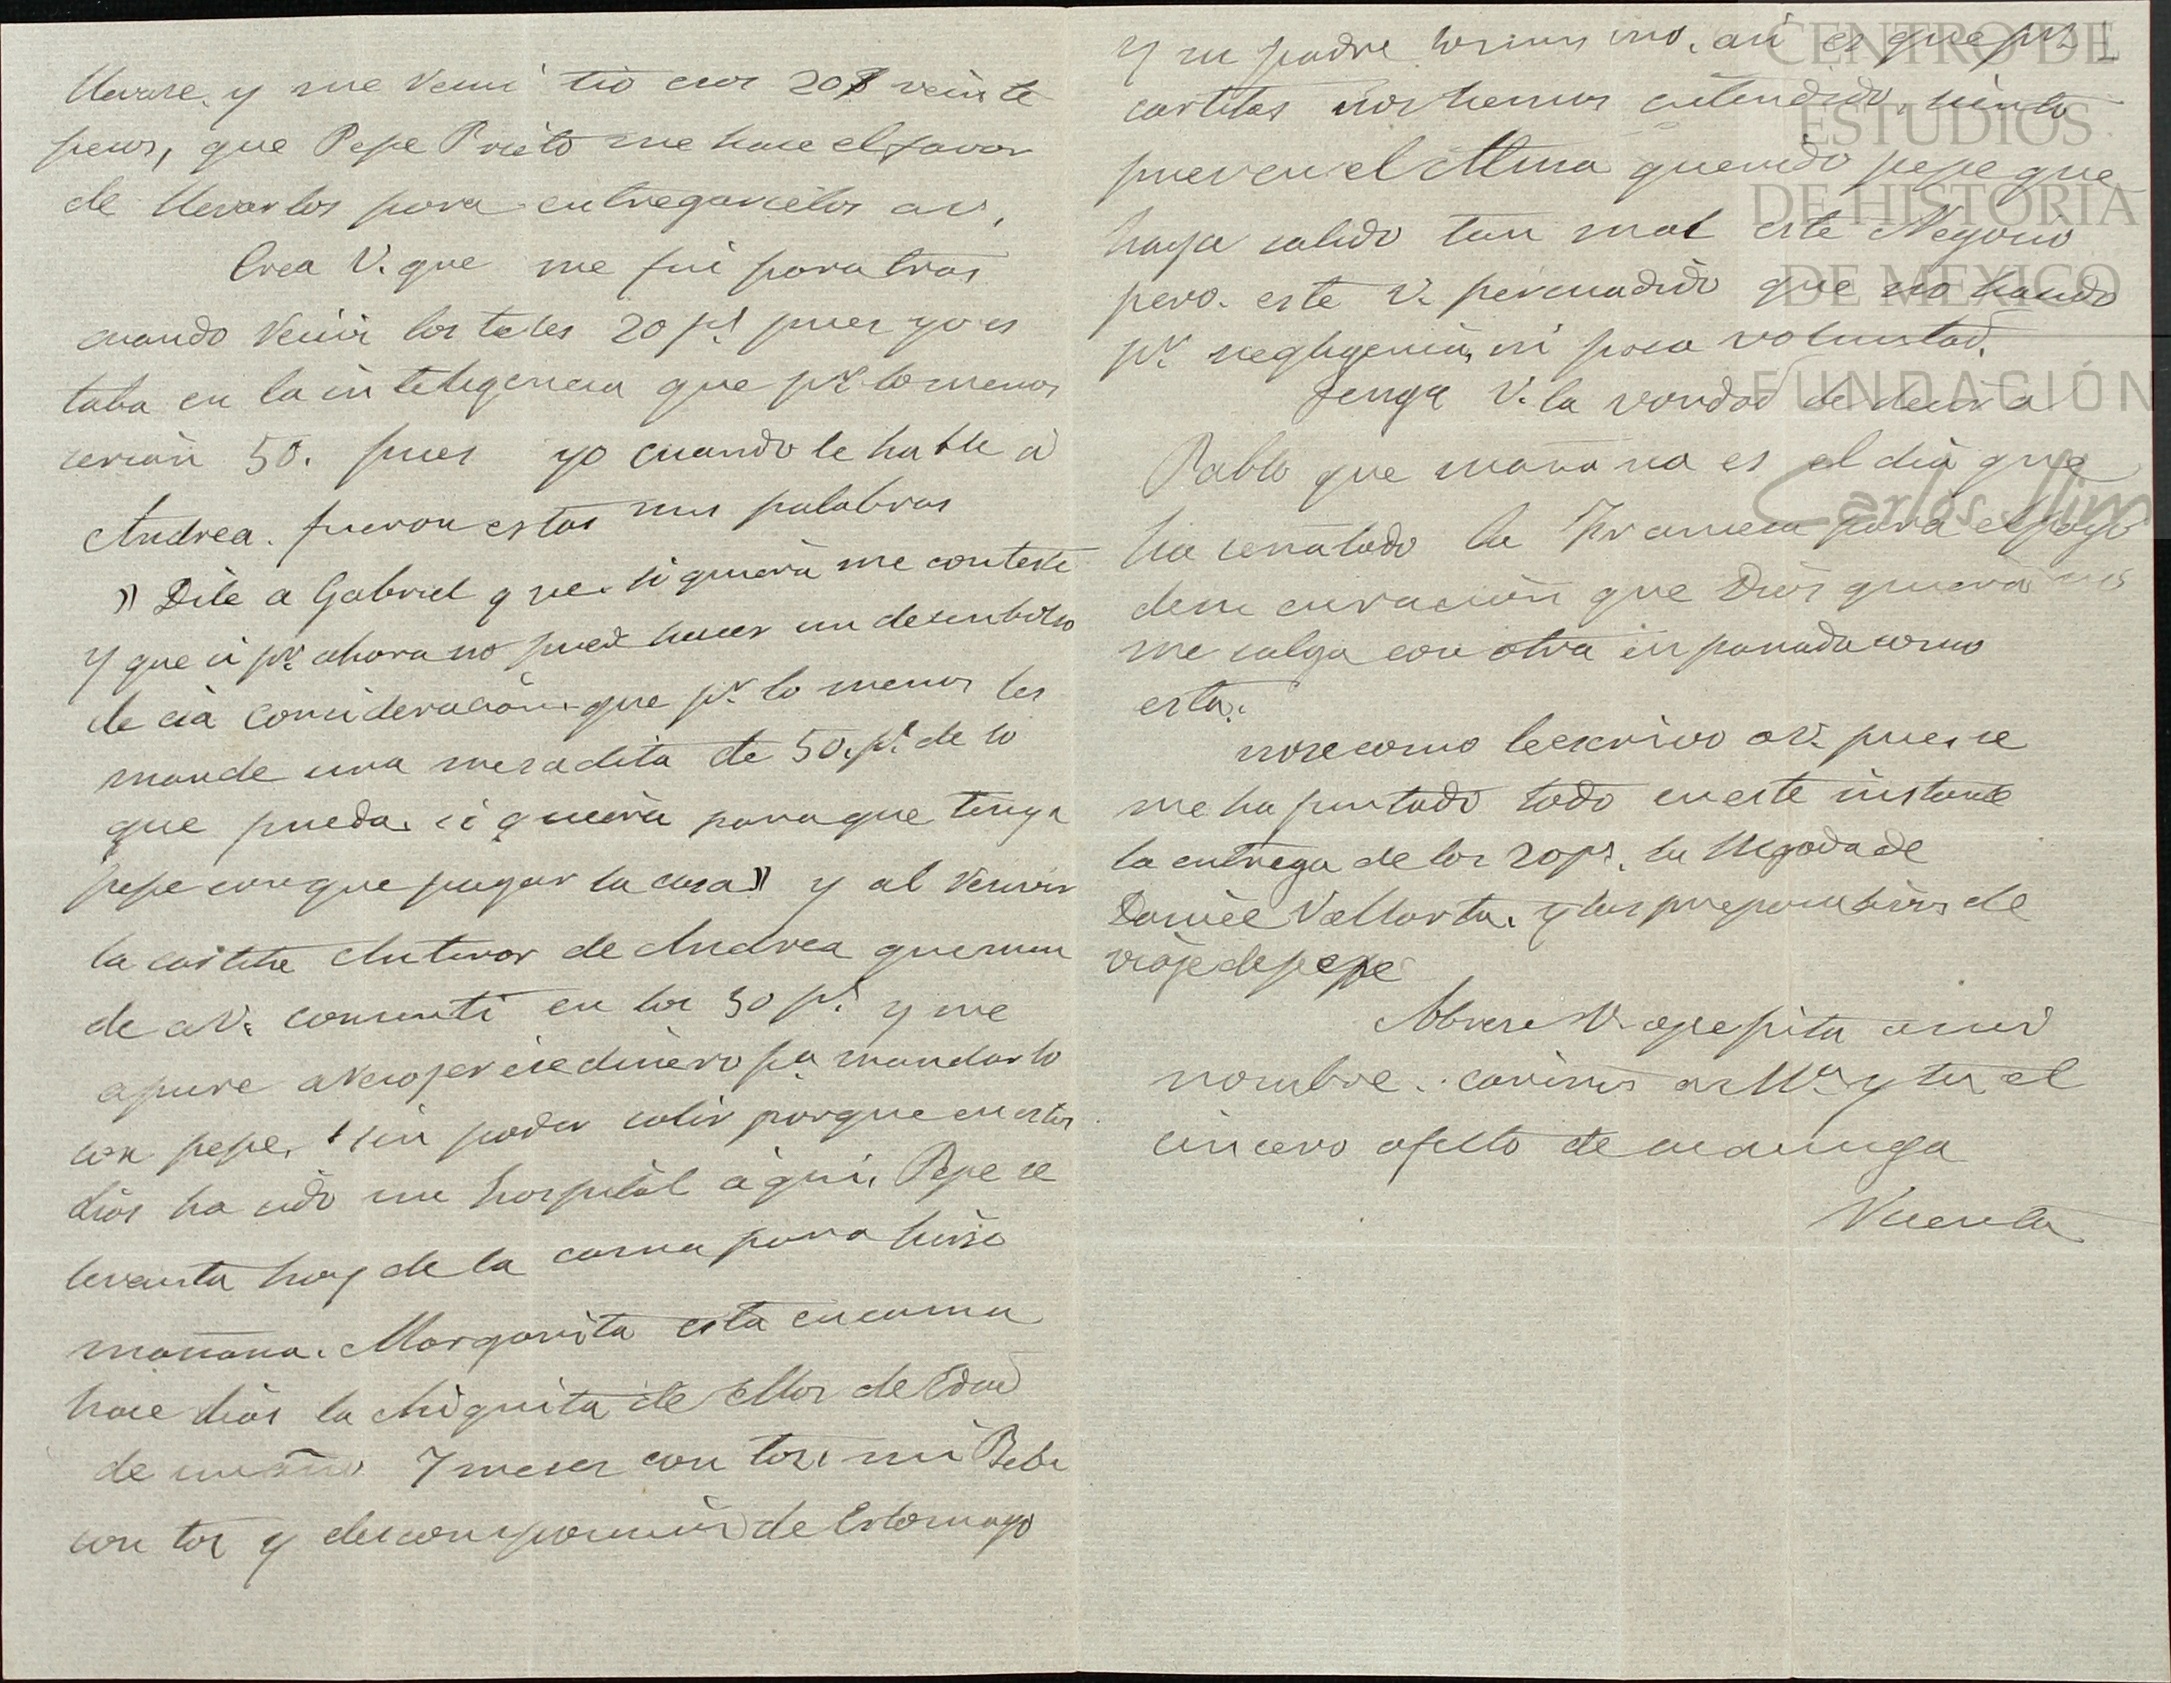 llevase. y me remi tio esos 20$ veinte
pesos, que Pepe Prieto me hace el favor
de llevarlos para entregarcelos a V.
Crea V. que me fui para tras
cuando venir los tales 20 ps pues yo es
taba en la inteligencia que pr. lo menos
serian 50. pues yo cuando le hable á
Andrea. fueron estas mis palabras
" Dile a Gabriel que. si quiera me conteste
y que si pr. ahora no puede hacer un desembolso
de cia consideración que pr. lo menos les
mande una mesadita de 50. ps. de lo
que pueda. si quiera para que tenga
pepe con que pagar la casa" y al
la cartita Anterior de Andrea que man
de a V. consenti en los 50 ps. y me
apure a recojer ese dinero pa. mandarlo
con pepe. sin poder salir porque en estos
dias ha sido un hospital aqui. Pepe se
levanta hoy de la cama para hirse
mañana. Margarita esta en cama
hace dias la chiquita de Ellos de Edad
de un año 7 meses con tos. mi Bebe
con tos y descomposicion de Estomago
y su padre so. asi es que pr.
cartitas nos hemos entendido. siento
pues en el Alma querido pepe que
haya salido tan mal este Negocio
pero. este V. persuadido que no ha sido
pr. negligencia, ni poca voluntad.
Tenga V. la vondad de decir a
Pablo que mañana es el dia que
ha señalado la Francesa para el pago
de su curación que Dios quiera no
me salga con otra enpanada como
esta.
no se como le escrivo a V. pues se
me ha juntado todo en este instante
la entrega de los 20 ps. la llegada de
Daniel Vallarta. y los preparativos de
viaje de pepe
Abrase V. a pepita a mi
nombre. cariños a Ma. y tu el
sincero afecto de su amiga
Vicenta
CENTRO DE
ESTUDIOS
DE HISTORIA
DE MEXICO
FUNDACIÓN
Carlos Slim